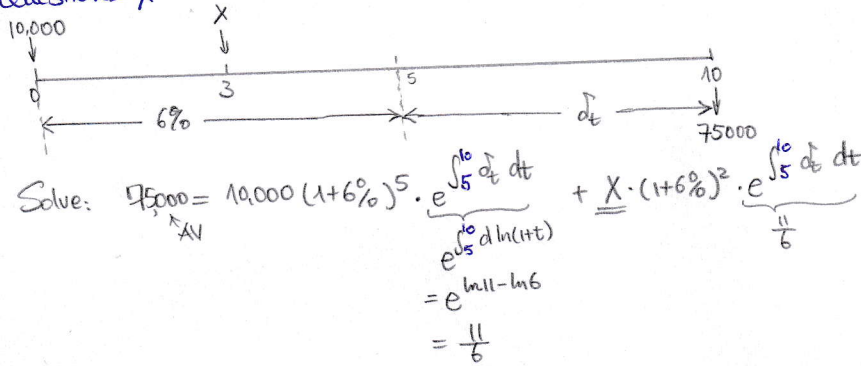 10,000
X
0 3 5 10
6% δ_t
75000
Solve: 75000 = 10,000 (1+6%)^5 · e^{∫_5^{10} δ_t dt} + X · (1+6%)^2 · e^{∫_5^{10} δ_t dt}
AV
e^{∫_5^{10} d ln(1+t)}
11/6
= e^{ln11 - ln6}
= 11/6